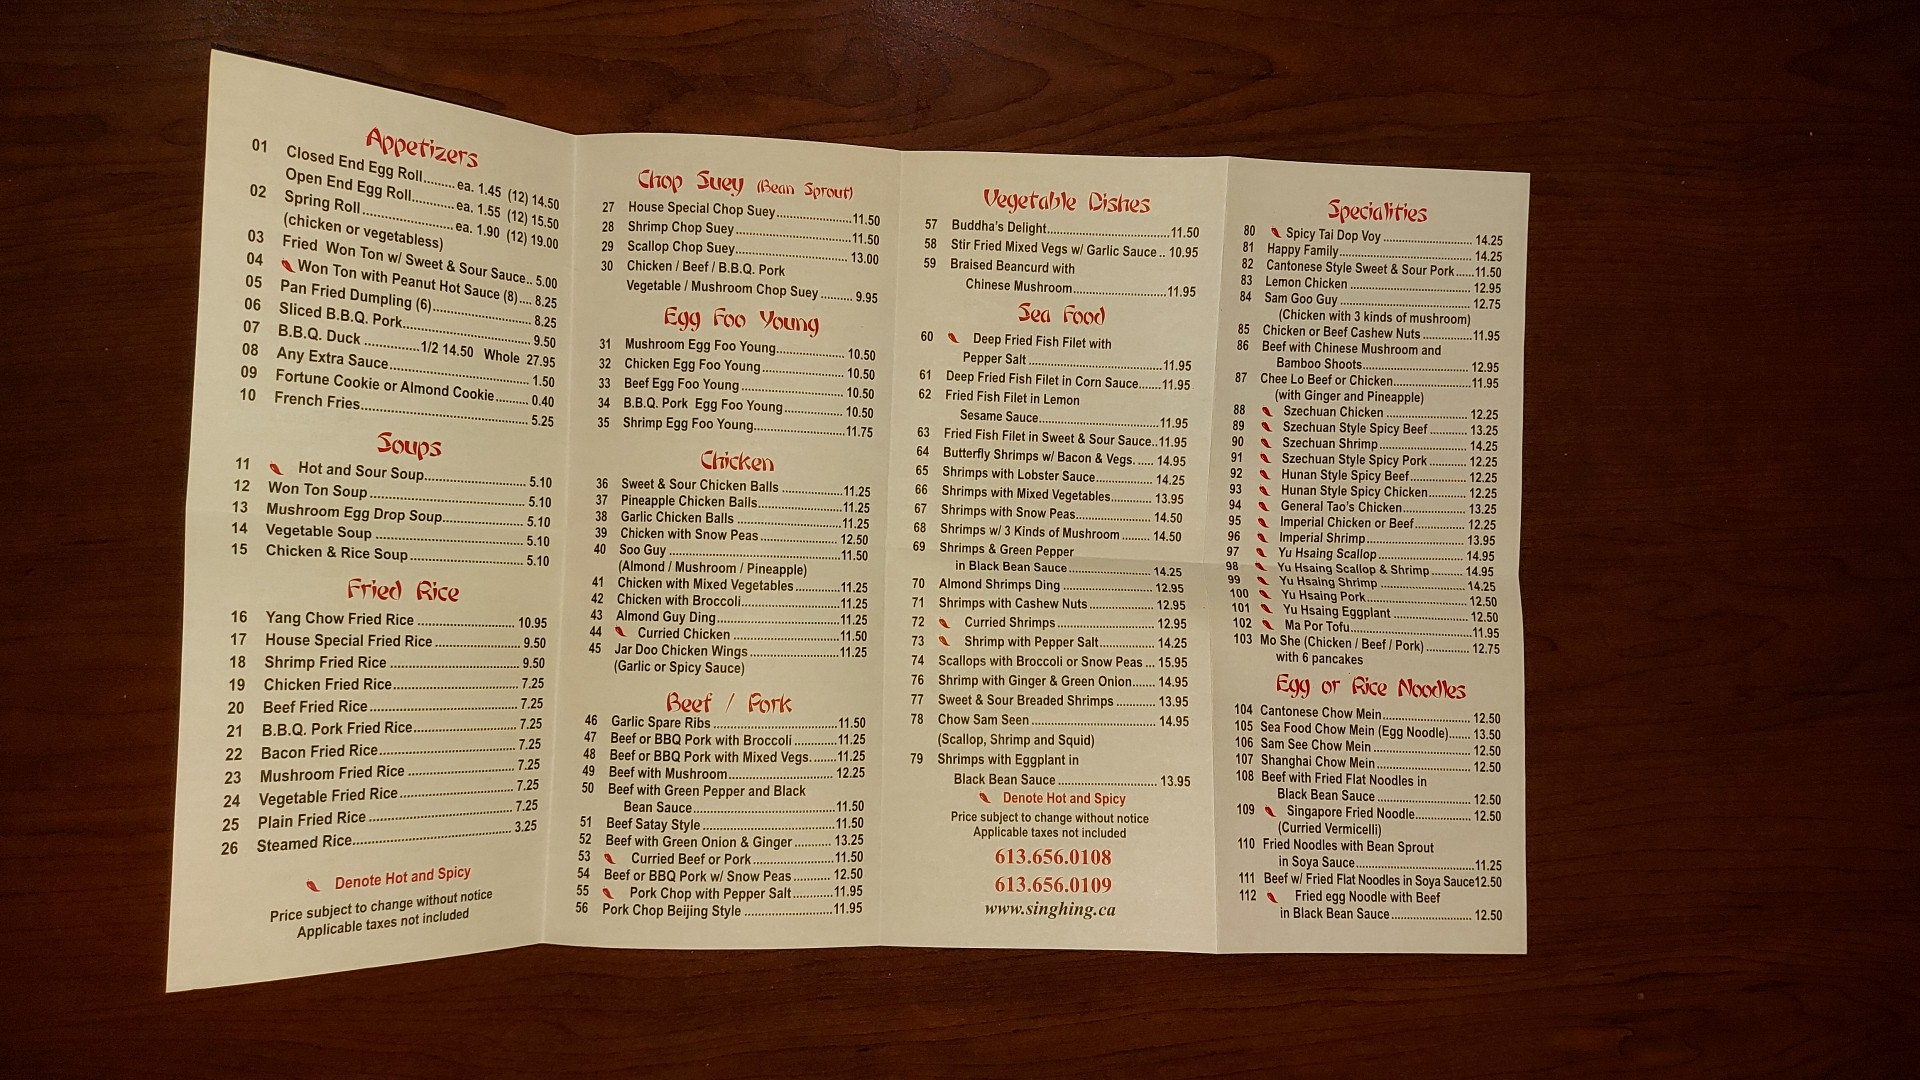 Appetizers
01 Closed End Egg Roll......... ea. 1.45 (12) 14.50
Open End Egg Roll............ ea. 1.55 (12) 15.50
02 Spring Roll .......................... ea. 1.90 (12) 19.00
(chicken or vegetabless)
03 Fried Won Ton w/ Sweet & Sour Sauce.. 5.00
04 Won Ton with Peanut Hot Sauce (8).... 8.25
05 Pan Fried Dumpling (6)............................ 8.25
06 Sliced B.B.Q. Pork................................... 9.50
07 B.B.Q. Duck ...............1/2 14.50 Whole 27.95
08 Any Extra Sauce....................................... 1.50
09 Fortune Cookie or Almond Cookie......... 0.40
10 French Fries............................................. 5.25
Soups
11 Hot and Sour Soup............................ 5.10
12 Won Ton Soup ............................................ 5.10
13 Mushroom Egg Drop Soup....................... 5.10
14 Vegetable Soup .......................................... 5.10
15 Chicken & Rice Soup ................................ 5.10
Fried Rice
16 Yang Chow Fried Rice ........................... 10.95
17 House Special Fried Rice ........................ 9.50
18 Shrimp Fried Rice .................................... 9.50
19 Chicken Fried Rice................................... 7.25
20 Beef Fried Rice ......................................... 7.25
21 B.B.Q. Pork Fried Rice............................. 7.25
22 Bacon Fried Rice...................................... 7.25
23 Mushroom Fried Rice .............................. 7.25
24 Vegetable Fried Rice................................ 7.25
25 Plain Fried Rice ........................................ 7.25
26 Steamed Rice............................................ 3.25
Denote Hot and Spicy
Price subject to change without notice
Applicable taxes not included
Chop Suey (Bean Sprout)
27 House Special Chop Suey......................11.50
28 Shrimp Chop Suey ..................................11.50
29 Scallop Chop Suey................................. 13.00
30 Chicken / Beef / B.B.Q. Pork
Vegetable / Mushroom Chop Suey ......... 9.95
Egg Foo Young
31 Mushroom Egg Foo Young.................... 10.50
32 Chicken Egg Foo Young........................ 10.50
33 Beef Egg Foo Young .............................. 10.50
34 B.B.Q. Pork Egg Foo Young................. 10.50
35 Shrimp Egg Foo Young...........................11.75
Chicken
36 Sweet & Sour Chicken Balls ..................11.25
37 Pineapple Chicken Balls.........................11.25
38 Garlic Chicken Balls ...............................11.25
39 Chicken with Snow Peas ....................... 12.50
40 Soo Guy ...................................................11.50
(Almond / Mushroom / Pineapple)
41 Chicken with Mixed Vegetables .............11.25
42 Chicken with Broccoli.............................11.25
43 Almond Guy Ding....................................11.25
44 Curried Chicken ................................11.50
45 Jar Doo Chicken Wings ..........................11.25
(Garlic or Spicy Sauce)
Beef / Pork
46 Garlic Spare Ribs .....................................11.50
47 Beef or BBQ Pork with Broccoli ............11.25
48 Beef or BBQ Pork with Mixed Vegs........11.25
49 Beef with Mushroom.............................. 12.25
50 Beef with Green Pepper and Black
Bean Sauce.........................................11.50
51 Beef Satay Style .......................................11.50
52 Beef with Green Onion & Ginger ........... 13.25
53 Curried Beef or Pork ........................11.50
54 Beef or BBQ Pork w/ Snow Peas ........... 12.50
55 Pork Chop with Pepper Salt.............11.95
56 Pork Chop Beijing Style ..........................11.95
Vegetable Dishes
57 Buddha's Delight.....................................11.50
58 Stir Fried Mixed Vegs w/ Garlic Sauce .. 10.95
59 Braised Beancurd with
Chinese Mushroom............................11.95
Sea Food
60 Deep Fried Fish Filet with
Pepper Salt ........................................11.95
61 Deep Fried Fish Filet in Corn Sauce.......11.95
62 Fried Fish Filet in Lemon
Sesame Sauce....................................11.95
63 Fried Fish Filet in Sweet & Sour Sauce..11.95
64 Butterfly Shrimps w/ Bacon & Vegs. ..... 14.95
65 Shrimps with Lobster Sauce................. 14.25
66 Shrimps with Mixed Vegetables............ 13.95
67 Shrimps with Snow Peas....................... 14.50
68 Shrimps w/ 3 Kinds of Mushroom ......... 14.50
69 Shrimps & Green Pepper
in Black Bean Sauce .......................... 14.25
70 Almond Shrimps Ding ............................ 12.95
71 Shrimps with Cashew Nuts ................... 12.95
72 Curried Shrimps ............................... 12.95
73 Shrimp with Pepper Salt................. 14.25
74 Scallops with Broccoli or Snow Peas ... 15.95
76 Shrimp with Ginger & Green Onion....... 14.95
77 Sweet & Sour Breaded Shrimps ............ 13.95
78 Chow Sam Seen ...................................... 14.95
(Scallop, Shrimp and Squid)
79 Shrimps with Eggplant in
Black Bean Sauce ............................... 13.95
Denote Hot and Spicy
Price subject to change without notice
Applicable taxes not included
613.656.0108
613.656.0109
www.singhing.ca
Specialities
80 Spicy Tai Dop Voy ........................... 14.25
81 Happy Family........................................ 14.25
82 Cantonese Style Sweet & Sour Pork.....11.50
83 Lemon Chicken ..................................... 12.95
84 Sam Goo Guy ........................................ 12.75
(Chicken with 3 kinds of mushroom)
85 Chicken or Beef Cashew Nuts ...............11.95
86 Beef with Chinese Mushroom and
Bamboo Shoots................................ 12.95
87 Chee Lo Beef or Chicken.......................11.95
(with Ginger and Pineapple)
88 Szechuan Chicken ........................ 12.25
89 Szechuan Style Spicy Beef ........... 13.25
90 Szechuan Shrimp........................... 14.25
91 Szechuan Style Spicy Pork ........... 12.25
92 Hunan Style Spicy Beef................. 12.25
93 Hunan Style Spicy Chicken........... 12.25
94 General Tao's Chicken................... 13.25
95 Imperial Chicken or Beef............... 12.25
96 Imperial Shrimp.............................. 13.95
97 Yu Hsaing Scallop ......................... 14.95
98 Yu Hsaing Scallop & Shrimp ......... 14.95
99 Yu Hsaing Shrimp ......................... 14.25
100 Yu Hsaing Pork.............................. 12.50
101 Yu Hsaing Eggplant ...................... 12.50
102 Ma Por Tofu.....................................11.95
103 Mo She (Chicken / Beef / Pork) ............. 12.75
with 6 pancakes
Egg or Rice Noodles
104 Cantonese Chow Mein......................... 12.50
105 Sea Food Chow Mein (Egg Noodle)...... 13.50
106 Sam See Chow Mein ............................. 12.50
107 Shanghai Chow Mein............................ 12.50
108 Beef with Fried Flat Noodles in
Black Bean Sauce ............................ 12.50
109 Singapore Fried Noodle................. 12.50
(Curried Vermicelli)
110 Fried Noodles with Bean Sprout
in Soya Sauce....................................11.25
111 Beef w/ Fried Flat Noodles in Soya Sauce12.50
112 Fried egg Noodle with Beef
in Black Bean Sauce ........................ 12.50